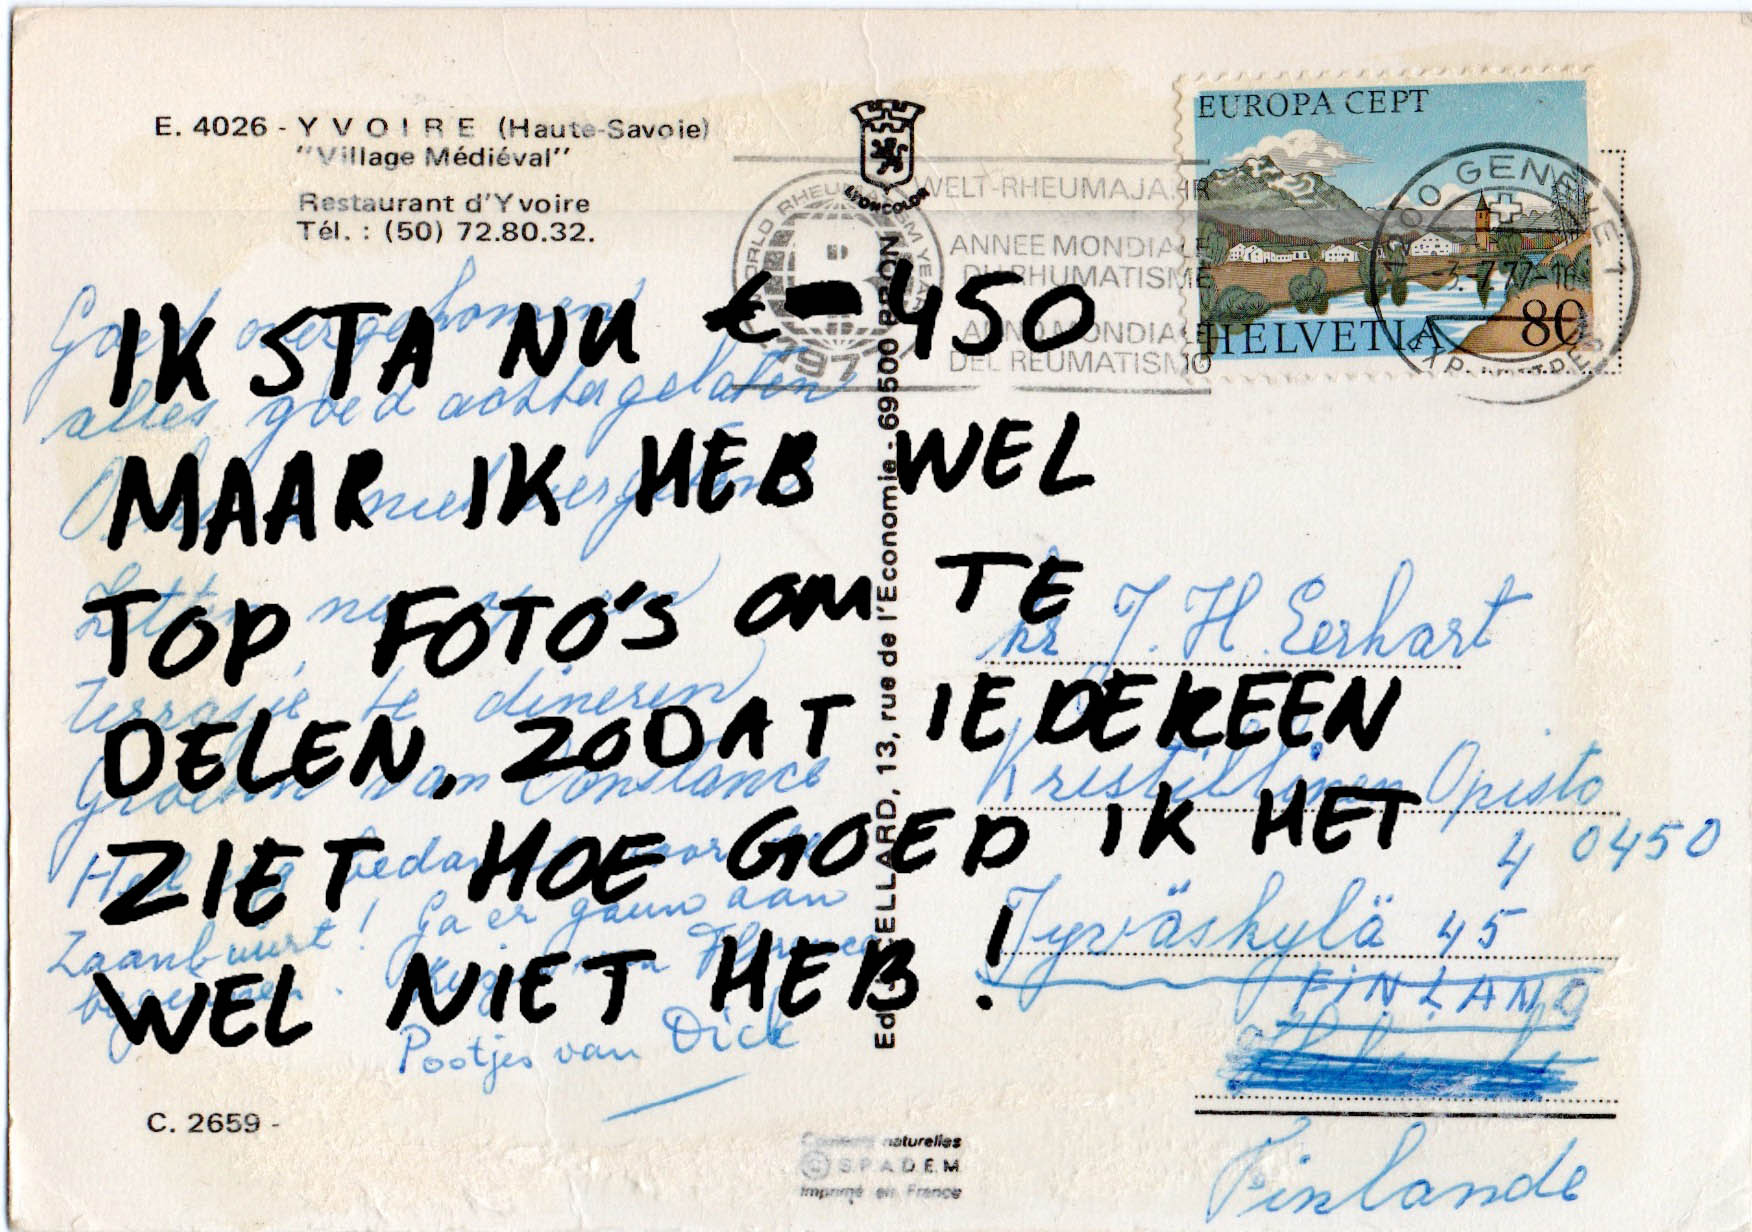 E. 4026 - YVOIRE (Haute-Savoie)
"Village Médiéval"
Restaurant d'Yvoire
Tél. : (50) 72.80.32.
LYONCOLOR
WORLD RHEUMATISM YEAR
1977
WELT-RHEUMAJAHR
ANNEE MONDIALE
DU RHUMATISME
ANNO MONDIALE
DEL REUMATISMO
EUROPA CEPT
HELVETIA 80
1200 GENEVE 1
-3.7.77-16
IK STA NU €-450
MAAR IK HEB WEL
TOP FOTO'S OM TE
DELEN, ZODAT IEDEREEN
ZIET HOE GOED IK HET
WEL NIET HEB!
Goed overgekomen
alles goed achtergelaten
terrasje te dineren
Groeten van Constance
Heel bedankt voor
Zaanbuurt! Ga er gauw aan
van Florence
Pootjes van Dick
CELLARD, 13, rue de l'Economie - 69500 BRON
J. H. Eerhart
Kristillinen Opisto
4 0450
Jyväskylä 45
FINLAND
Finlande
C. 2659 -
Couleurs naturelles
© S.P.A.D.E.M.
Imprimé en France